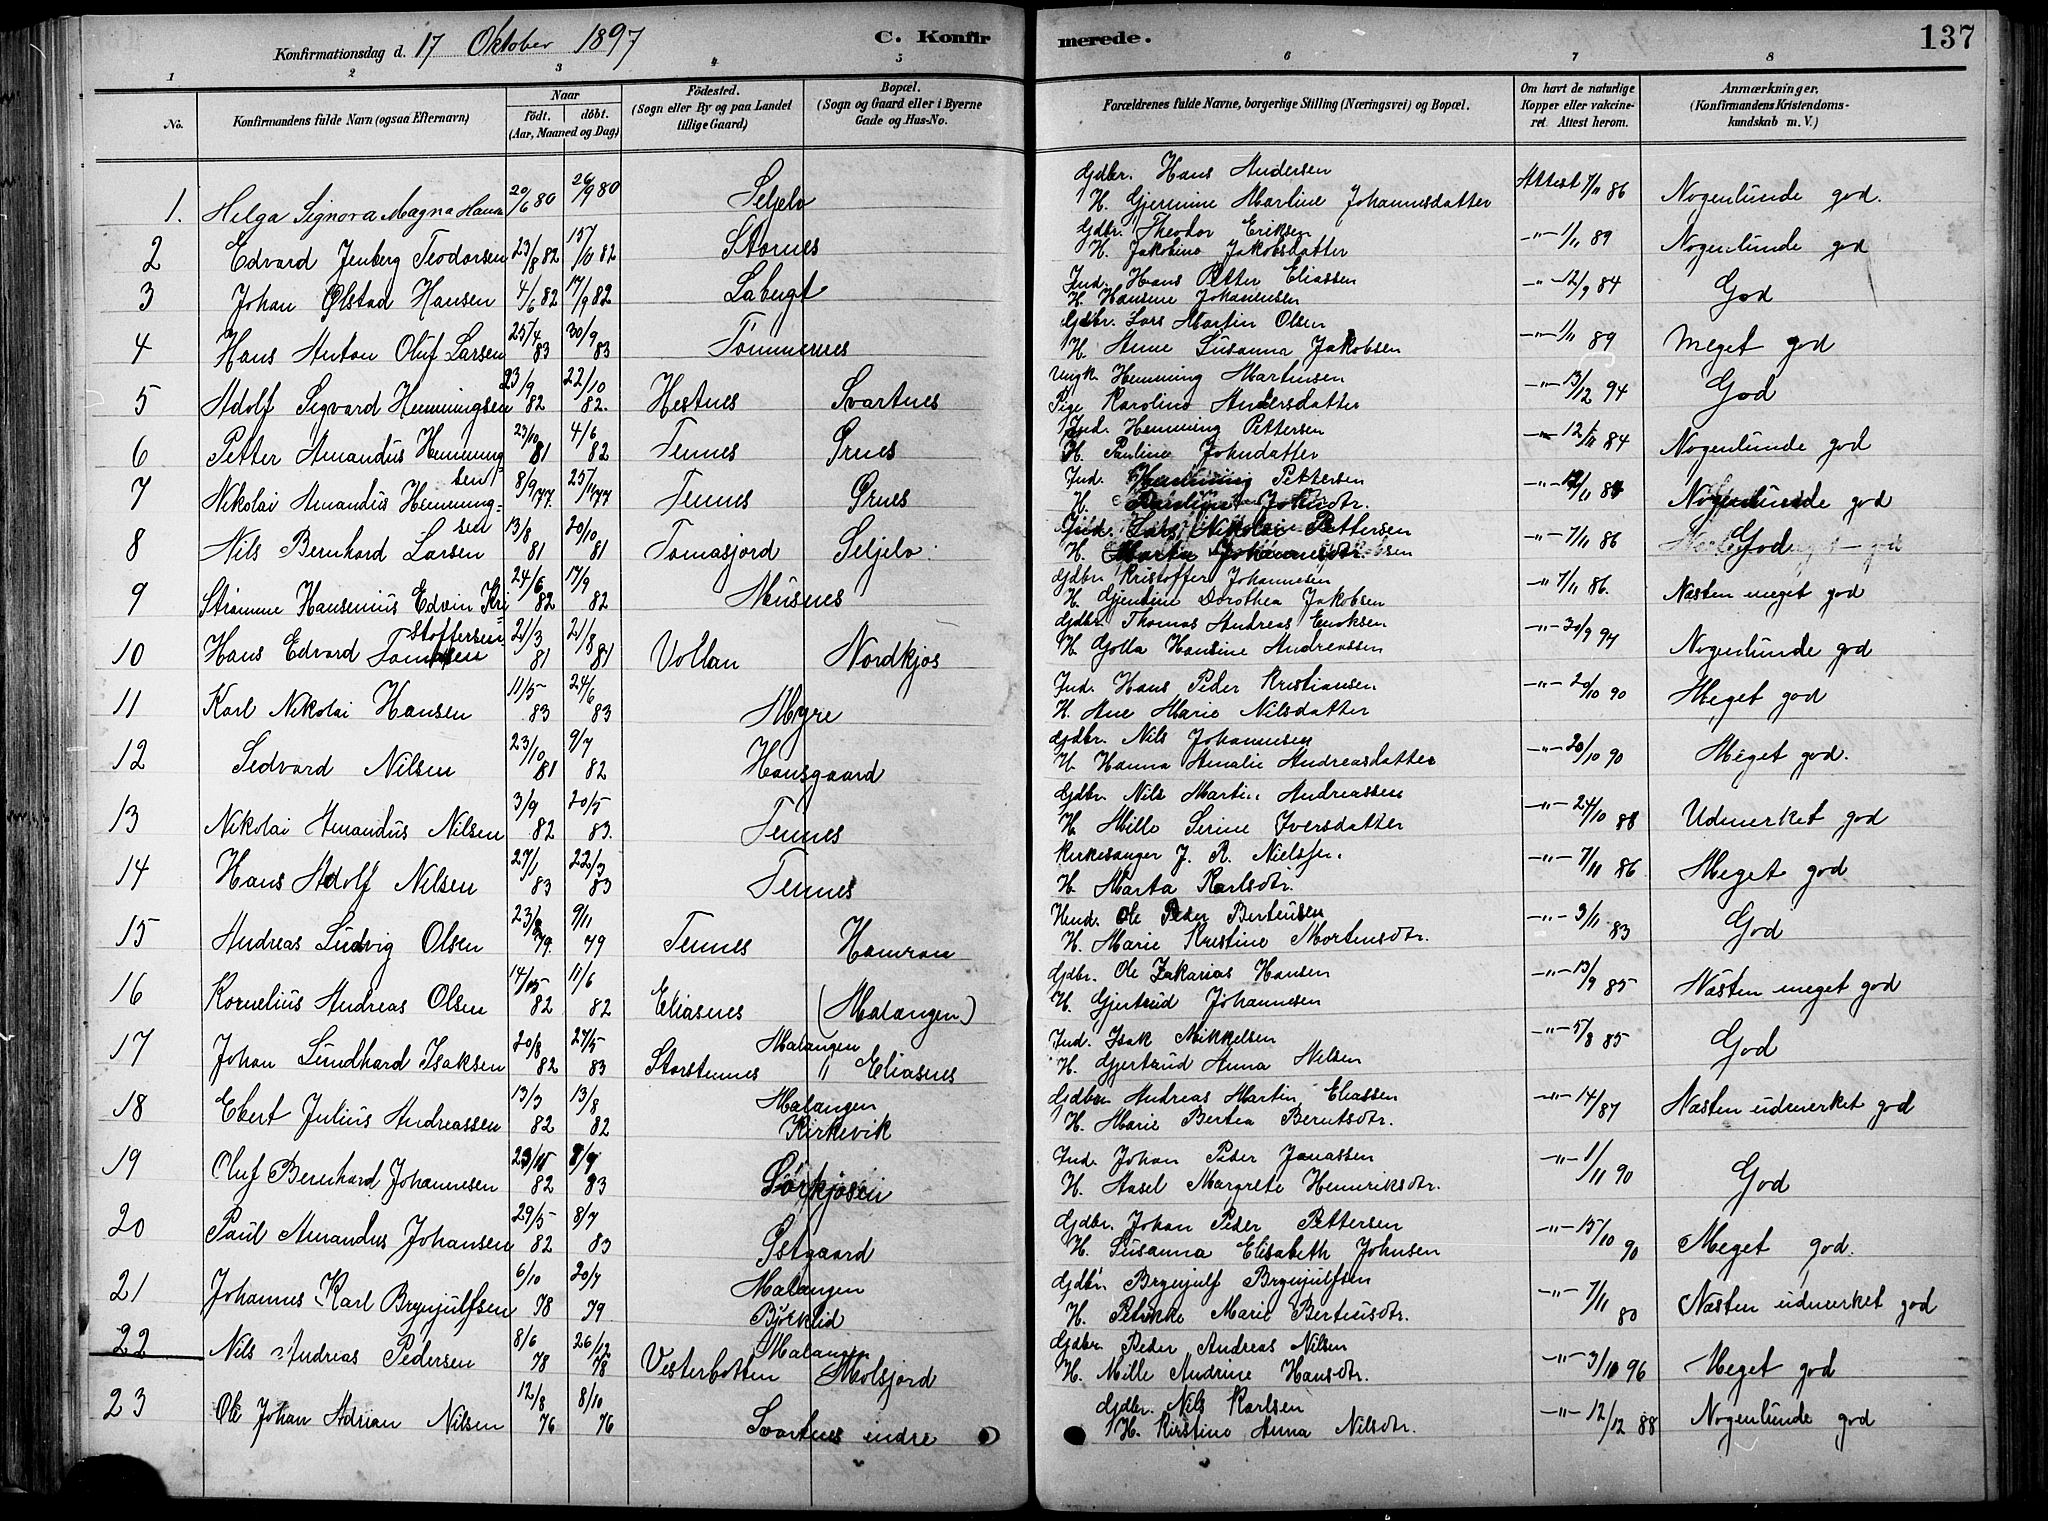 Konfirmationsdag d. 17 Oktober 1897
C. Konfirmerede.
137
1 2 3 4 5 6 7 8
No.
Konfirmandens fulde Navn (ogsaa Efternavn)
Naar
födt. döbt.
(Aar, Maaned og Dag)
Födested.
(Sogn eller By og paa Landet
tillige Gaard)
Bopæl.
(Sogn og Gaard eller i Byerne
Gade og Hus-No.
Forældrenes fulde Navne, borgerlige Stilling (Næringsvei) og Bopæl.
Om havt de naturlige
Kopper eller vakcine-
ret. Attest herom.
Anmærkninger.
(Konfirmandens Kristendoms-
kundskab m. V.)
Gdbr. Hans Andersen
1. Helga Signora Magna Hans 20/6 80 26/9 80 Seljelv H. Gjermine Martine Johannesdatter Attest 7/11 86 Nogenlunde god.
Gdbr. Theodor Eriksen
2 Edvard Jenberg Teodorsen 23/8 82 15/10 82 Stornes H. Jakobine Jakobsdatter -"- 1/11 89 Nogenlunde god
Ind. Hans Petter Eliassen
3 Johan Olstad Hansen 4/6 82 17/9 82 Labugt H. Hansine Johannesen -"- 12/9 84 God
Gdbr. Lars Martin Olsen
4 Hans Anton Oluf Larsen 25/4 83 30/9 83 Tømmernes H. Anne Susanna Jakobsen -"- 1/11 89 Meget god
Ungk. Hemming Martinsen
5 Adolf Sigvard Hemmingsen 23/9 82 22/10 82. Hestnes Svartnes Pige Karoline Andersdatter -"- 13/12 94 God
Ind. Hemming Pettersen
6 Petter Amandus Hemming- 23/10 81 4/6 82 Tennes Grnes H. Pauline Johndatter -"- 12/11 84 Nogenlunde god
sen
Ind. Hemming Pettersen
7 Nikolai Amandus Hemming- 8/9 77. 25/11 77 Tennes Grnes H. Johnsdtr. -"- 12/11 84 Nogenlunde god
sen
Ind. Lars Nikolai Pettersen
8 Nils Bernhard Larsen 13/8 81 20/10 81 Tomasjord Seljelv H. Marta Johannesdtr. -"- 7/11 86 God
Gdbr. Kristoffer Johannesen
9 Strømme Hansenius Edvin Kri 24/6 82 17/9 82 Musnes H. Gjentine Dorothea Jakobsen -"- 7/11 86. Næsten meget god
stoffersen
Gdbr. Thomas Andreas Enoksen
10 Hans Edvard Tomassen 21/3 81 21/8 81 Vollan Nordkjos H. Golla Hansine Andreassen -"- 30/9 97 Nogenlunde god
Ind. Hans Peder Kristiansen
11 Karl Nikolai Hansen 11/5 83 24/6 83 Myre H. Ane Marie Nilsdatter -"- 20/10 90 Meget god
Gdbr. Nils Johannesen
12 Sedvard Nilsen 23/10 81 9/7 82 Hansgaard H. Hanna Amalie Andreasdatter -"- 20/10 90 Meget god.
Gdbr. Nils Martin Andreassen
13 Nikolai Amandus Nilsen 3/9 82 20/5 83. Tennes H. Mille Serine Iversdatter -"- 24/10 88 Udmerket god
Kirkesanger J. R. Nielssen.
14 Hans Adolf Nilsen 27/1 83 22/3 83 Tennes H. Marta Karlsdtr. -"- 7/11 86 Meget god
Ole Peder Berteusen
15 Andreas Ludvig Olsen 23/ 79. 9/11 79 Tennes Hamran H. Marie Kristine Mortensdtr. -"- 3/11 83 God
Gdbr. Ole Zakarias Hansen
16 Kornelius Andreas Olsen 14/05 82 11/6 82 Eliasnes (Malangen) H. Gjertrud Johannesen -"- 13/9 85 Næsten meget god
Ind. Isak Mikkelsen
17 Johan Lundhard Isaksen 20/8 82 27/5 83 Storstennes Malangen " Eliasnes H. Gjertrud Anna Nilsen -"- 5/8 85 God
Gdbr. Andreas Martin Eliassen
18 Ebert Julius Andreassen 13/3 82 13/8 82 Malangen Kirkevik H. Marie Bertea Berntsdtr. -"- 14/87 Næsten udmerket god
Ind. Johan Peder Jonassen
19 Oluf Bernhard Johannesen 82 83 Sørkjosen H. Aasel Margrete Henriksdtr. -"- 1/11 90 God
Gdbr. Johan Peder Pettersen
20 Paul Amandus Johansen 29/5 82 8/7 83 Østgaard H. Susanna Elisabeth Johnsen -"- 15/10 90 Meget god.
Gdbr. Brynjulf Brynjulfsen
21 Johannes Karl Brynjulfsen 6/10 78 20/7 79 Malangen Bjørklid H. Petrikke Marie Berteusdtr. -"- 7/11 80 Næsten udmerket god
Gdbr. Peder Andreas Nilsen
22 Nils Andreas Pedersen 8/6 78 26/12 78 Vesterbotten Malangen Molsjord H. Mille Andrine Hansdtr. -"- 3/10 96 Meget god
Gdbr. Nils Karlsen
23 Ole Johan Adrian Nilsen 12/8 76 8/10 76 Svartnes indre H. Kirstine Anna Nilsdtr. -"- 12/12 88 Nogenlunde god